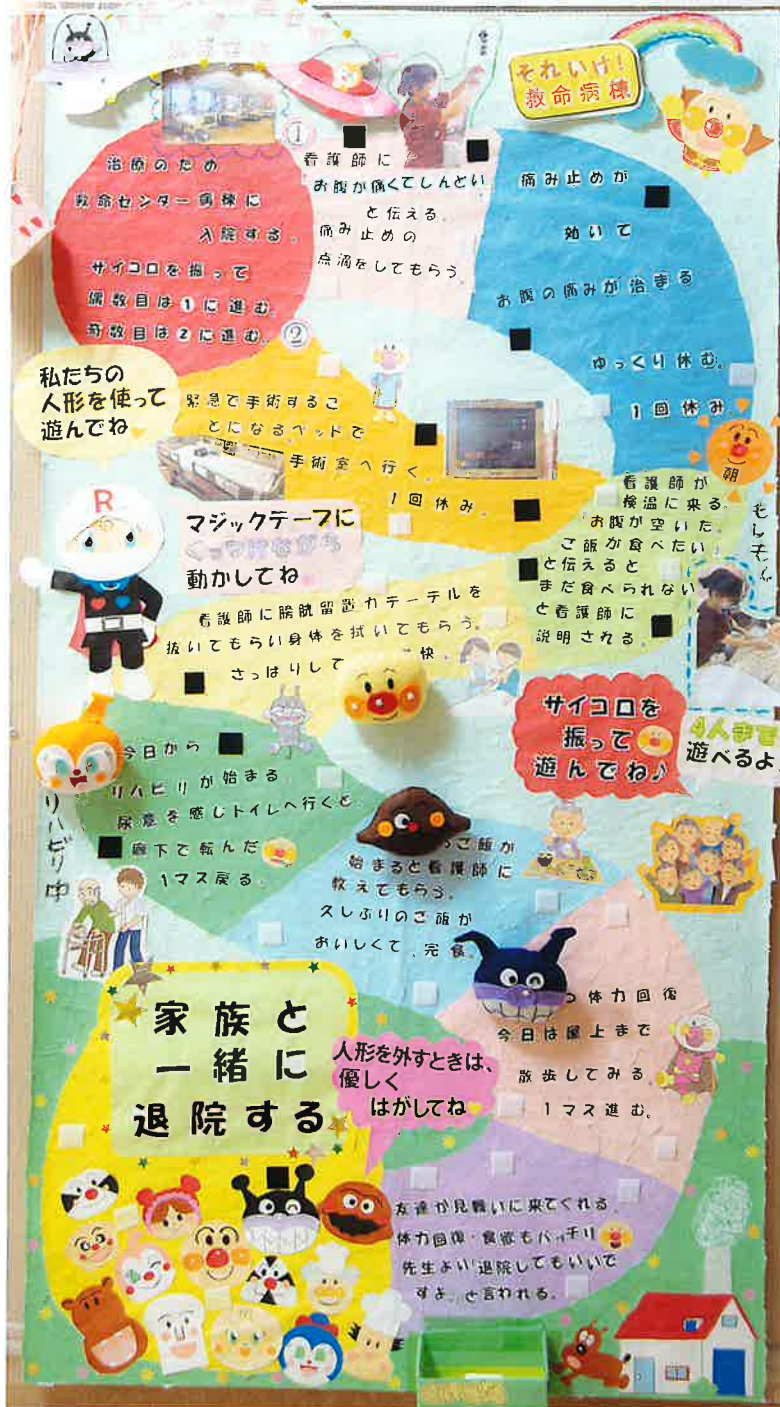 それいけ!
救命病棟
治療のため
救命センター病棟に
入院する。
サイコロを振って
偶数目は1に進む。
奇数目は2に進む。
①
看護師に
「お腹が痛くてしんどい」
と伝える。
痛み止めの
点滴をしてもらう。
痛み止めが
効いて
お腹の痛みが治まる
ゆっくり休む。
1回休み。
②
緊急で手術するこ
とになるベッドで
手術室へ行く。
1回休み。
私たちの
人形を使って
遊んでね
R
マジックテープに
くっつけながら
動かしてね
朝
看護師が
検温に来る。
「お腹が空いた。
ご飯が食べたい」
と伝えると
まだ食べられない
と看護師に
説明される。
もんもん
看護師に膀胱留置カテーテルを
抜いてもらい身体を拭いてもらう。
さっぱりして
快。
サイコロを
振って
遊んでね♪
4人まで
遊べるよ
今日から
リハビリが始まる
尿意を感じトイレへ行くと
廊下で転んだ
1マス戻る。
リハビリ中
ご飯が
始まると看護師に
教えてもらう。
久しぶりのご飯が
おいしくて、完食。
体力回復
今日は屋上まで
散歩してみる。
1マス進む。
家族と
一緒に
退院する
人形を外すときは、
優しく
はがしてね
友達が見舞いに来てくれる。
体力回復・食欲もバッチリ
先生より「退院してもいいで
すよ。」と言われる。